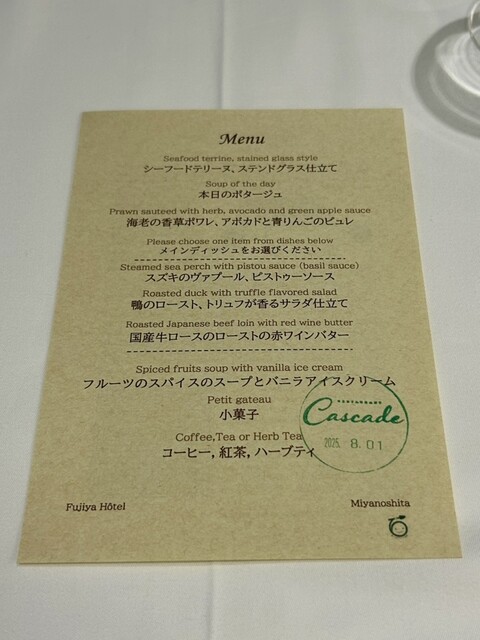 Menu
Seafood terrine, stained glass style
シーフードテリーヌ、ステンドグラス仕立て
Soup of the day
本日のポタージュ
Prawn sauteed with herb, avocado and green apple sauce
海老の香草ポワレ、アボカドと青りんごのピュレ
Please choose one item from dishes below
メインディッシュをお選びください
Steamed sea perch with pistou sauce (basil sauce)
スズキのヴァプール、ピストゥーソース
Roasted duck with truffle flavored salad
鴨のロースト、トリュフが香るサラダ仕立て
Roasted Japanese beef loin with red wine butter
国産牛ロースのローストの赤ワインバター
Spiced fruits soup with vanilla ice cream
フルーツのスパイスのスープとバニラアイスクリーム
Petit gateau
小菓子
Coffee,Tea or Herb Tea
コーヒー, 紅茶, ハーブティ
RESTAURANT
Cascade
2025. 8. 01
Fujiya Hôtel
Miyanoshita